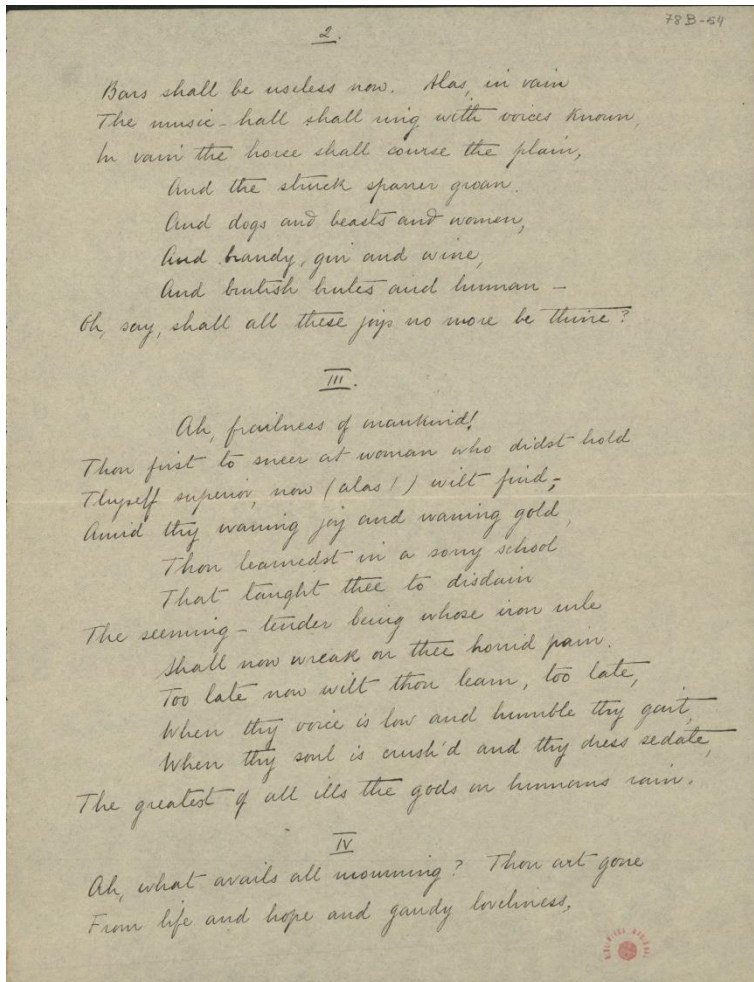 78B-54
2.
Bars shall be useless now. Alas, in vain
The music-hall shall ring with voices known,
In vain the horse shall course the plain,
And the struck sparrer groan.
And dogs and beasts and women,
And brandy, gin and wine,
And brutish brutes and human –
Oh, say, shall all these joys no more be thine?
III.
Ah, frailness of mankind!
Thou first to sneer at woman who didst hold
Thyself superior, now (alas!) wilt find,
Amid thy waning joy and waning gold,
Thou learnedst in a sorry school
That taught thee to disdain
The seeming-tender being whose iron rule
Shall now wreak on thee horrid pain.
Too late now wilt thou learn, too late,
When thy voice is low and humble thy gait,
When thy soul is crush'd and thy dress sedate,
The greatest of all ills the gods on humans rain.
IV
Ah, what avails all mourning? Thou art gone
From life and hope and gaudy loveliness,